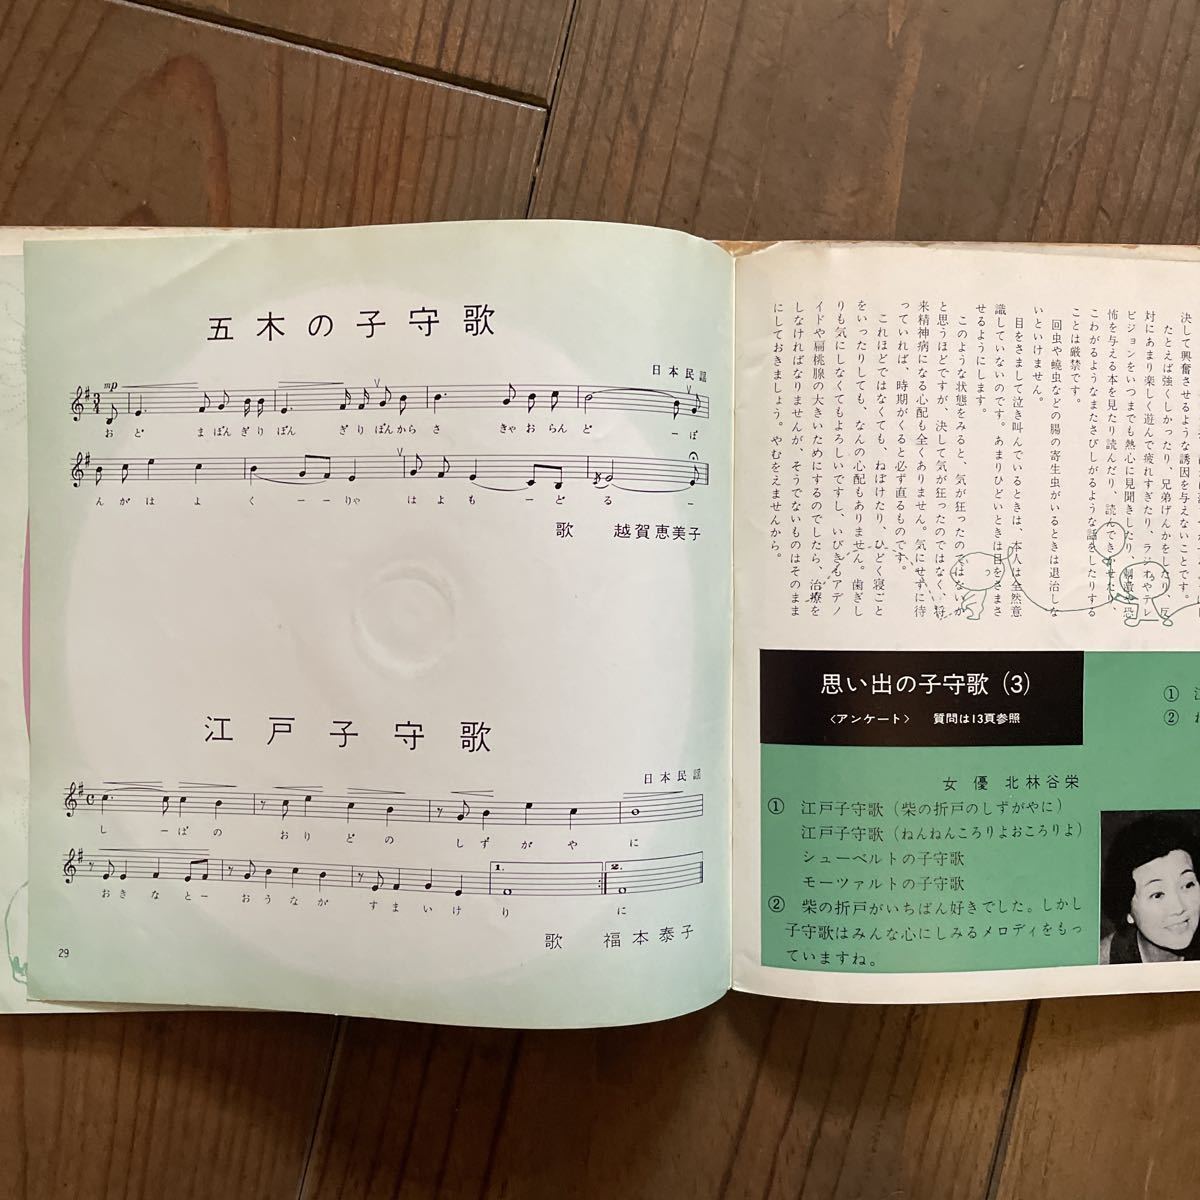 五木の子守歌
日本民謡
mp
おど まぼんぎりぼん ぎりぼんからさ きゃおらんど ーぼ
んがはよ くーーりゃ はよもーどる ー
歌 越賀恵美子
江戸子守歌
日本民謡
しーばの おりどの しずがや に
おきなとー おうなが すまいけ り に
1.
2.
歌 福本泰子
29
決して興奮させるような誘因を与えないことです。
たとえば強くしかったり、兄弟げんかをしたり、反
対にあまり楽しく遊んで疲れすぎたり、ラジオやテレ
ビジョンをいつまでも熱心に見聞きしたり、刺激や恐
怖を与える本を見たり読んだり、読んできかせたり、
こわがるようなまたさびしがるような話をしたりする
ことは厳禁です。
回虫や蟯虫などの腸の寄生虫がいるときは退治しな
いといけません。
目をさまして泣き叫んでいるときは、本人は全然意
識していないのです。あまりひどいときは目をさまさ
せるようにします。
このような状態をみると、気が狂ったのではないか
と思うほどですが、決して気が狂ったのではなく、将
来精神病になる心配も全くありません。気にせずに待
っていれば、時期がくると必ず直るものです。
これほどではなくても、ねぼけたり、ひどく寝ごと
をいったりしても、なんの心配もありません。歯ぎし
りも気にしなくてもよろしいですし、いびきもアデノ
イドや扁桃腺の大きいためにするのでしたら、治療を
しなければなりませんが、そうでないものはそのまま
にしておきましょう。やむをえませんから。
思い出の子守歌(3)
〈アンケート〉 質問は13頁参照
女優 北林谷栄
① 江戸子守歌(柴の折戸のしずがやに)
江戸子守歌(ねんねんころりよおころりよ)
シューベルトの子守歌
モーツァルトの子守歌
② 柴の折戸がいちばん好きでした。しかし
子守歌はみんな心にしみるメロディをもっ
ていますね。
①
②